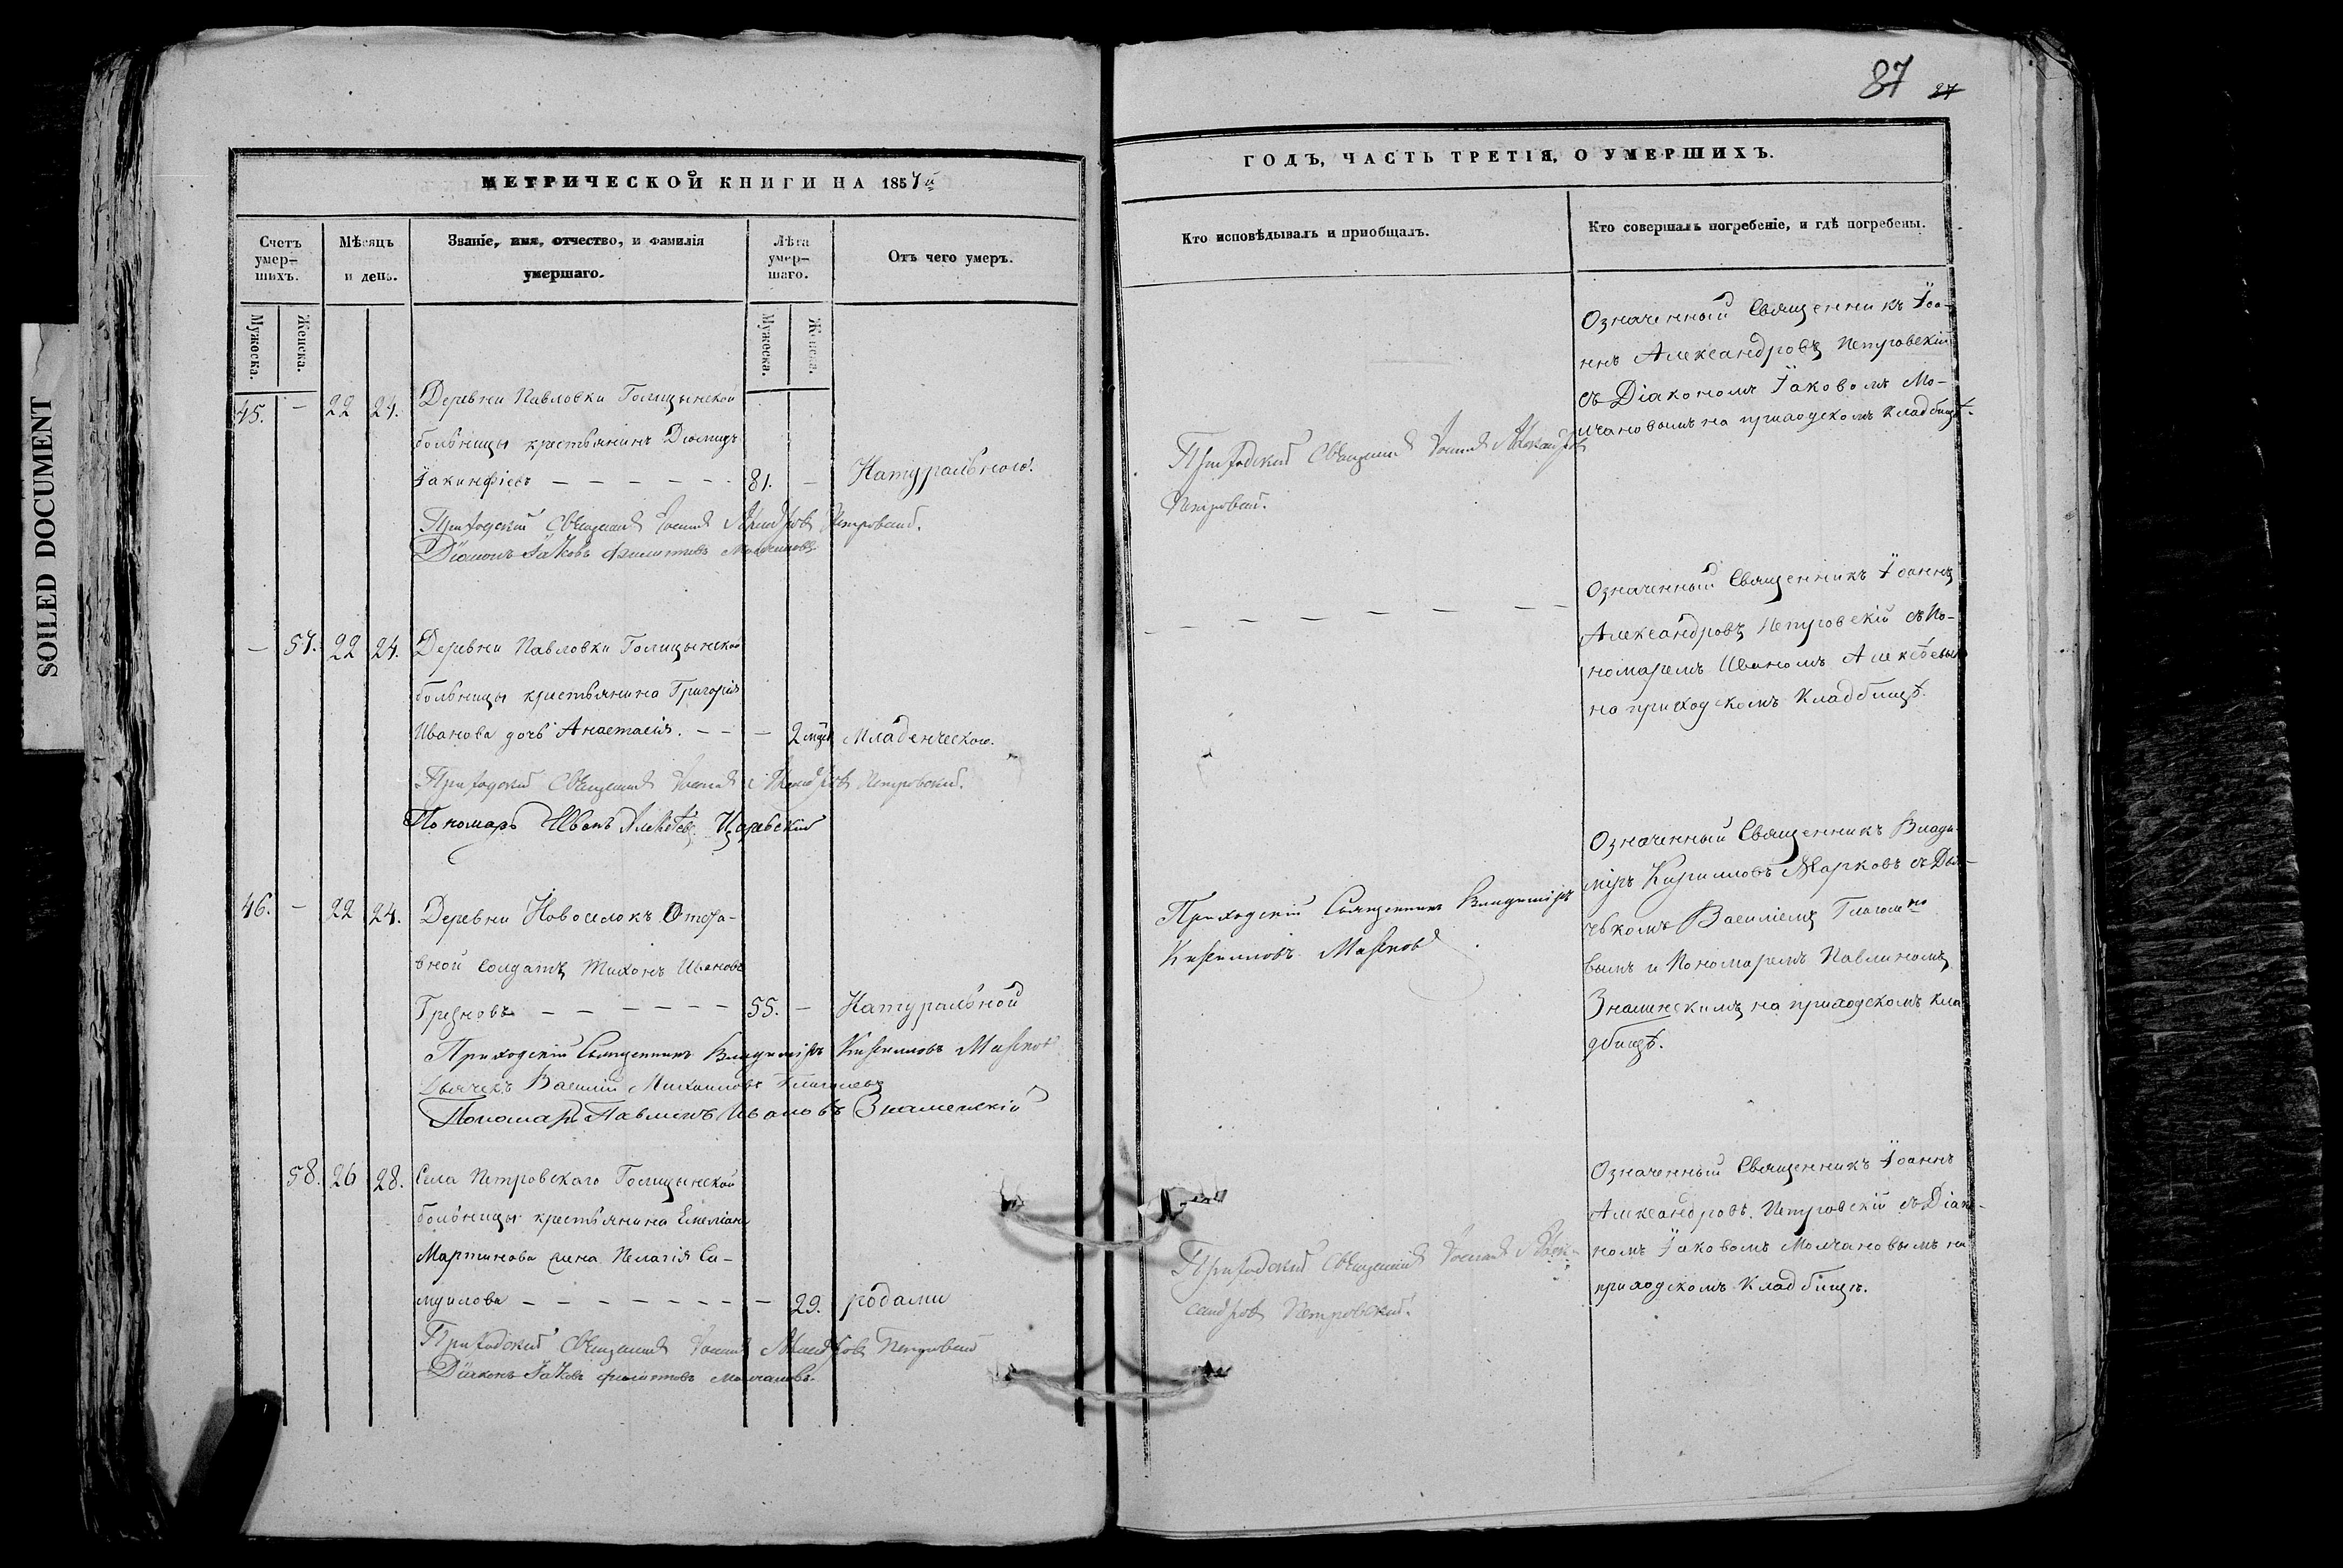 SOILED DOCUMENT
МЕТРИЧЕСКОЙ КНИГИ НА 1857й
Счетъ умер-шихъ.
Мѣсяцъ и день.
Званіе, имя, отчество, и фамилія умершаго.
Лѣта умер-шаго.
Отъ чего умеръ.
Мужеска.
Женска.
Мужеска.
Женска.
45. — 22 24. Деревни Павловки Голицынской
больницы крестьянинъ Діомидъ
Іакинфіевъ — — — — — — 81. — Натуральною.
Приходскій Священникъ Іоаннъ Александровъ Петровскій.
Діаконъ Іаковъ Филиповъ Молчановъ
— 57. 22 24. Деревни Павловки Голицынской
больницы крестьянина Григорія
Иванова дочь Анастасія. — — — 2 мѣся Младенческою.
Приходскій Священникъ Іоаннъ Александровъ Петровскій.
Пономарь Иванъ Алексѣевъ Царевскій
46. — 22 24. Деревни Новоселокъ Отста-
вной солдатъ Тихонъ Ивановъ
— — — — — — 55. — Натуральной
Приходскій Священникъ Владиміръ Кирилловъ Марковъ
Дьячекъ Василій Михаиловъ Глаголевъ
Пономарь Павлинъ Ивановъ Знаменскій
58. 26 28. Села Петровскаго Голицынской
больницы крестьянина Емеліана
Мартинова жена Пелагія Са-
муилова — — — — — — — — 29. родами
Приходскій Священникъ Іоаннъ Александровъ Петровскій
Діаконъ Іаковъ Филиповъ Молчановъ
87 27
ГОДЪ, ЧАСТЬ ТРЕТІЯ, О УМЕРШИХЪ.
Кто исповѣдывалъ и пріобщалъ.
Кто совершалъ погребеніе, и гдѣ погребены.
Приходскій Священникъ Іоаннъ Александровъ
Петровскій.
Означенный Священникъ Іоа-
ннъ Александровъ Петровскій
съ Діакономъ Іаковомъ Мо-
лчановымъ на приходскомъ кладбищѣ.
— — — — — — —
Означенный Священникъ Іоаннъ
Александровъ Петровскій съ По-
номаремъ Иваномъ Алексѣевымъ
на приходскомъ кладбищѣ.
Приходскій Священникъ Владиміръ
Кирилловъ Марковъ
Означенный Священникъ Влади-
міръ Кирилловъ Марковъ съ Дья-
чькомъ Василіемъ Глаголе-
вымъ и Пономаремъ Павлиномъ
Знаменскимъ на приходскомъ кла-
дбищѣ.
Приходскій Священникъ Іоаннъ Алек-
сандровъ Петровскій.
Означенный Священникъ Іоаннъ
Александровъ Петровскій съ Діако-
номъ Іаковомъ Молчановымъ на
приходскомъ кладбищѣ.